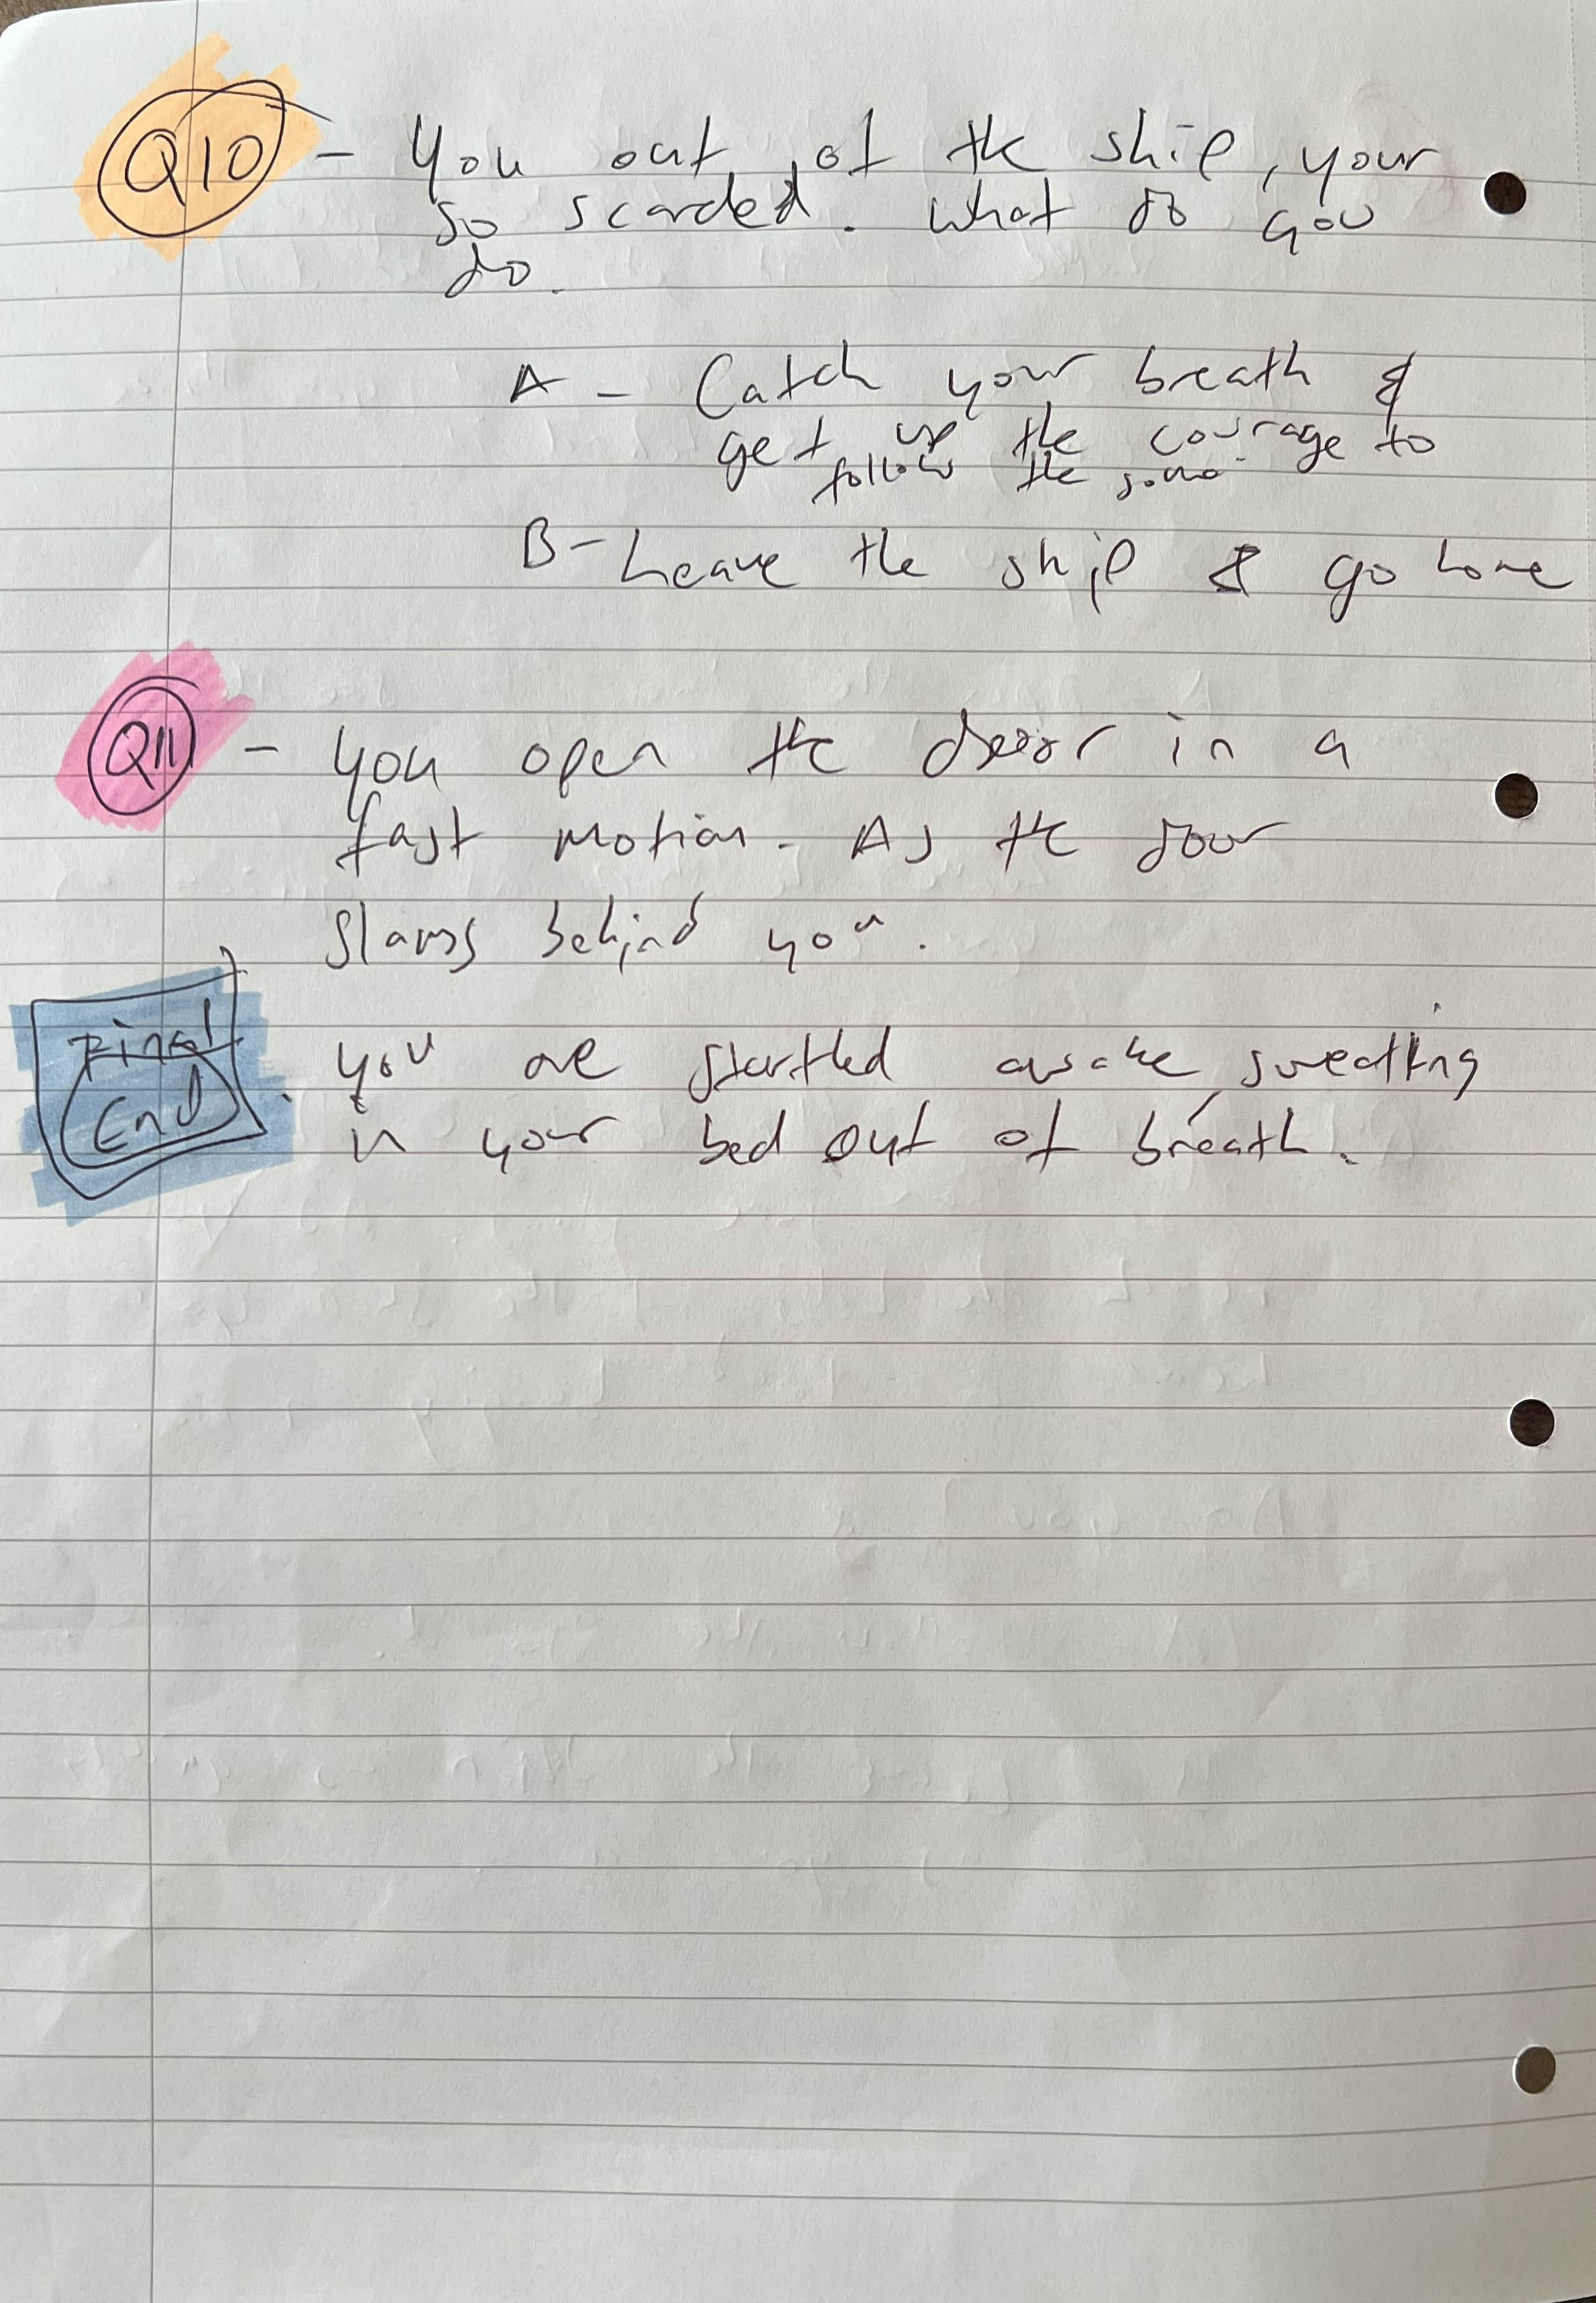 Q10 - You out of the ship, your
so scarded. What do you
do.
A - Catch your breath &
get up the courage to
follow the
B - Leave the ship & go home
Q11 - You open the door in a
fast motion. As the door
slams behind you.
Final
End
. you are startled awake, sweating
in your bed out of breath.